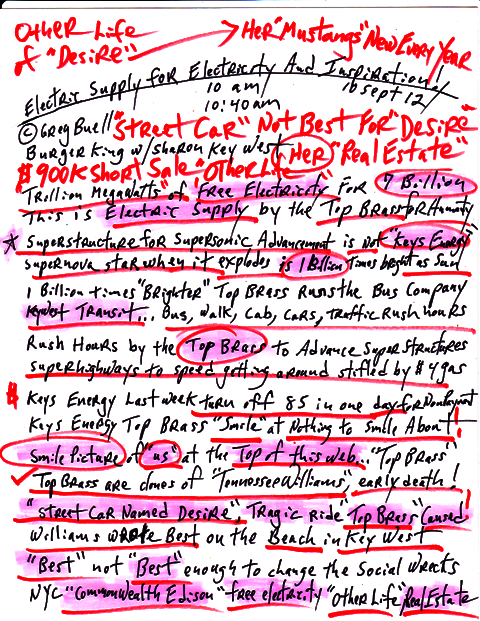 Other Life
of "Desire" → Her "Mustangs" New Every Year!
Electric Supply for Electricity And Inspiration!
10 am/ 10 Sept 12/
10:40 am
© Greg Buell "Street Car" Not Best For "Desire"
Burger King w/ Sharon Key West Her "Real Estate"
$900K Short Sale "Other Life"
"Trillion Megawatts" of "Free Electricity" For 7 Billion
This is Electric Supply by the Top Brass for Humanity
* Superstructure for Supersonic Advancement is Not "Keys Energy"
Supernova star when it explodes is 1 Billion Times bright as Sun
1 Billion times "Brighter" Top Brass Runs the Bus Company
Key West Transit... Bus, Walk, Cab, Cars, Traffic Rush hours
Rush Hours by the Top Brass to Advance Super Structures
Superhighways to speed getting around stifled by $4 gas
$ Keys Energy Last week turn off 85 in one day for Nonpayment
Keys Energy Top Brass "Smile" at Nothing to Smile About!
Smile Picture of "us" at the Top of this web... "Top Brass"
✓ Top Brass are clones of "Tennessee Williams", early death!
"Street Car Named Desire", Tragic ride "Top Brass" Caused!
Williams wrote Best on the Beach in Key West
"Best" not "Best" enough to change the Social Wrecks
NYC "Commonwealth Edison" "free electricity" "Other Life" "Real Estate